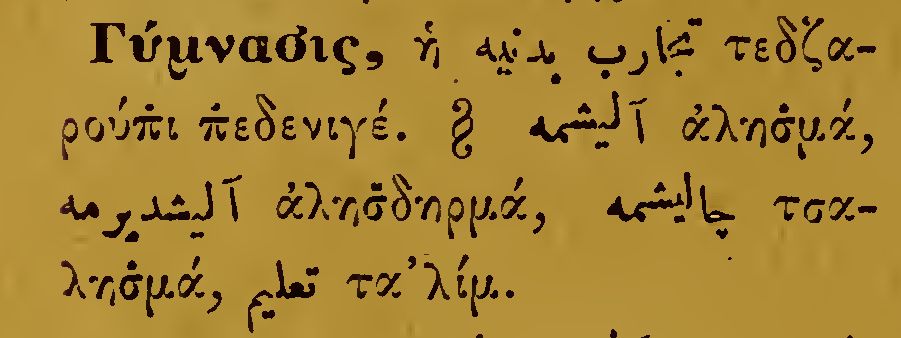 Γύμνασις, ἡ تجارب بدنيه τεδζα-
ρούπ̇ι π̇εδενιγέ. § آليشمه ἀλησ̇μά,
آليشديرمه ἀλησ̇δηρμά, چاليشمه τσα-
λησ̇μά, تعليم τα’λίμ.